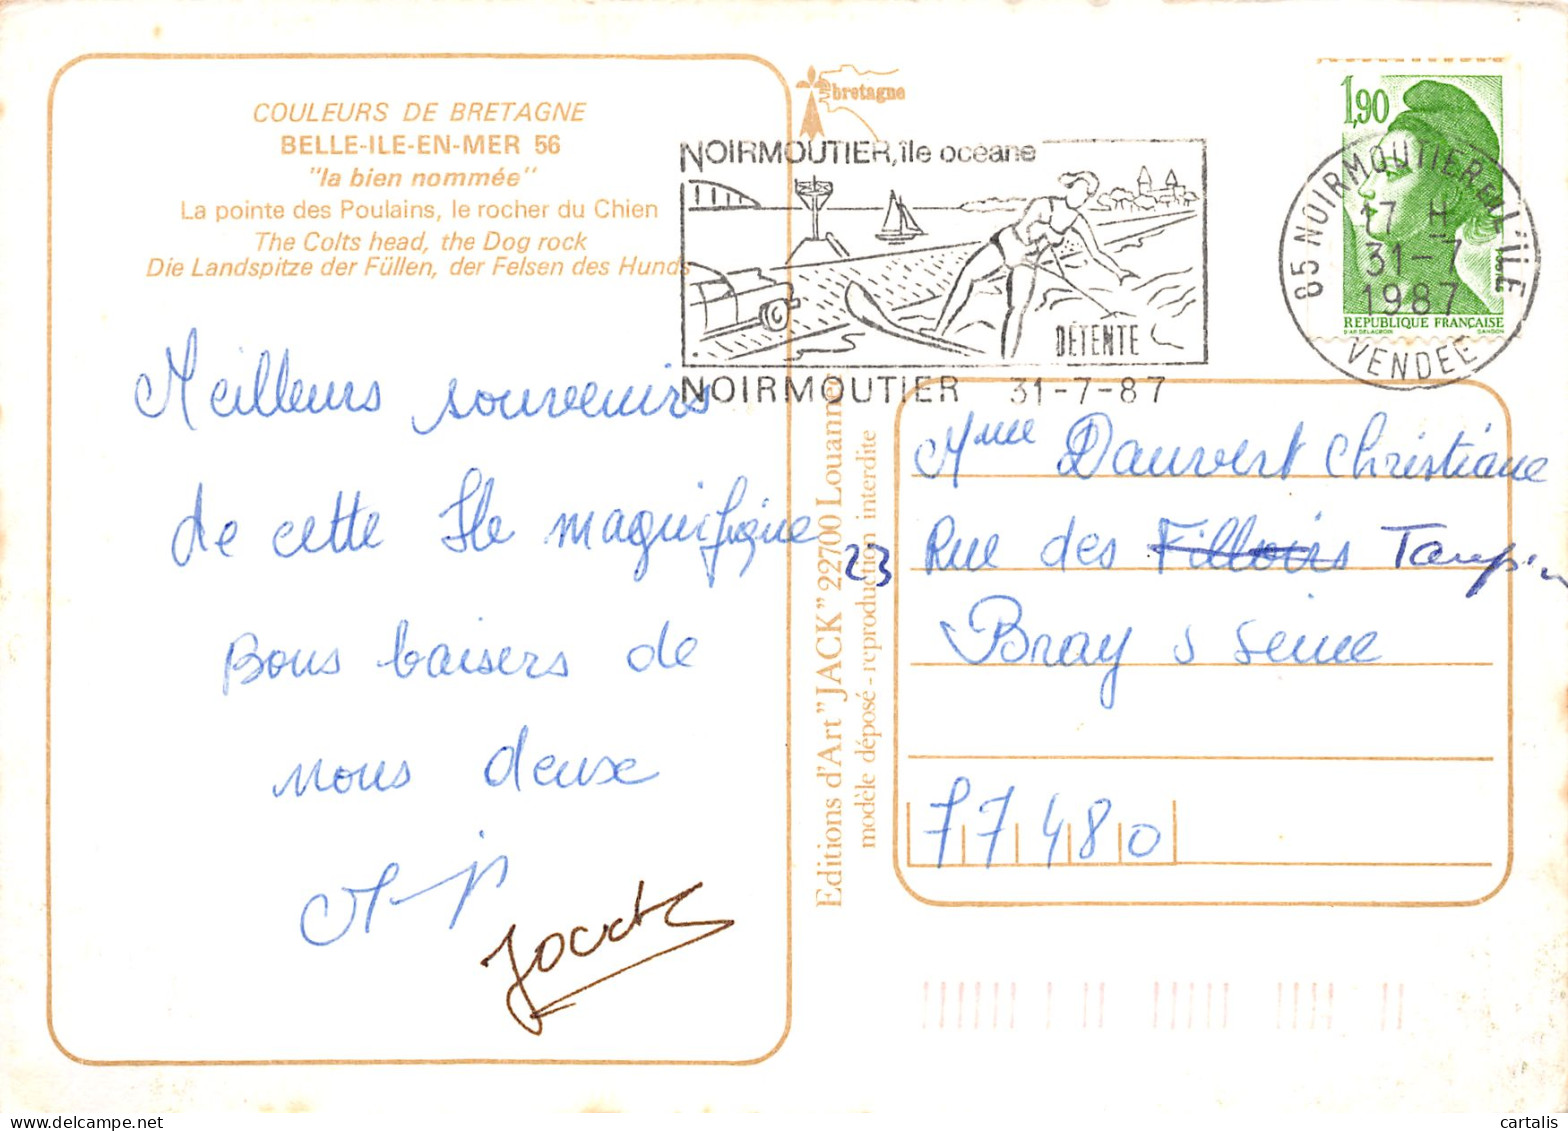 COULEURS DE BRETAGNE
BELLE-ILE-EN-MER 56
"la bien nommée"
La pointe des Poulains, le rocher du Chien
The Colts head, the Dog rock
Die Landspitze der Füllen, der Felsen des Hunds
Meilleurs souvenirs
de cette Ile magnifique
Bons baisers de
nous deux
bretagne
NOIRMOUTIER, île océane
DÉTENTE
NOIRMOUTIER 31-7-87
1,90
REPUBLIQUE FRANÇAISE
85 NOIRMOUTIER EN L'ILE
17 H
31-7
1987
VENDEE
Editions d'Art "JACK" 22700 Louannec
modèle déposé - reproduction interdite
Mme Dauvert Christiane
23 Rue des Filloirs Taupin
Bray s Seine
77480
cartalis
delcampe.net